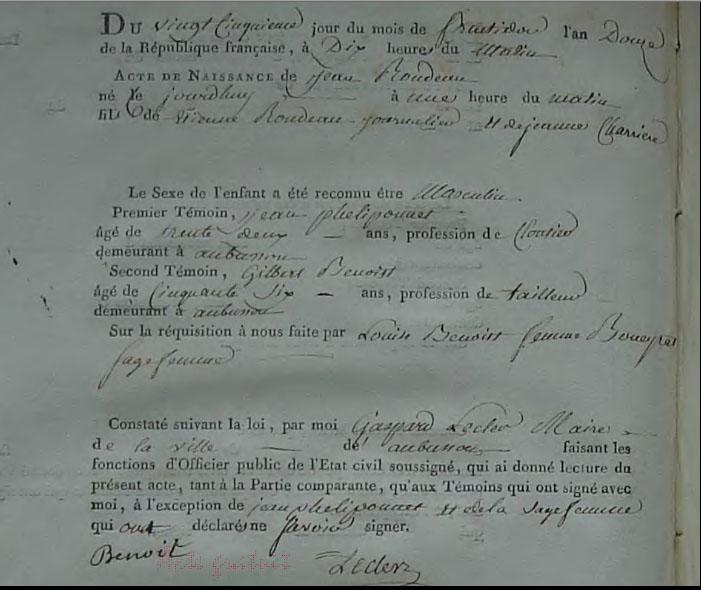 Du vingt Cinquieme jour du mois de fructidor l'an Douze
de la République française, à Dix heures du Matin
Acte de Naissance de jean Rondeau
né le jourdhuy à une heure du matin
fils de Etienne Rondeau journalier et de jeanne Charriere
Le Sexe de l'enfant a été reconnu être Masculin.
Premier Témoin, jean pheliponnet
âgé de trente deux ans, profession de Cloutier
demeurant à aubusson
Second Témoin, Gilbert Benoist
âgé de Cinquante Six ans, profession de tailleur
demeurant à aubusson
Sur la réquisition à nous faite par Louise Benoist femme
sage femme
Constaté suivant la loi, par moi Gaspard Lecler Maire
de la ville de aubusson faisant les
fonctions d'Officier public de l'Etat civil soussigné, qui ai donné lecture du
présent acte, tant à la Partie comparante, qu'aux Témoins qui ont signé avec
moi, à l'exception de jean pheliponnet et de la sage femme
qui ont déclarés ne savoir signer.
Benoit Leclerz